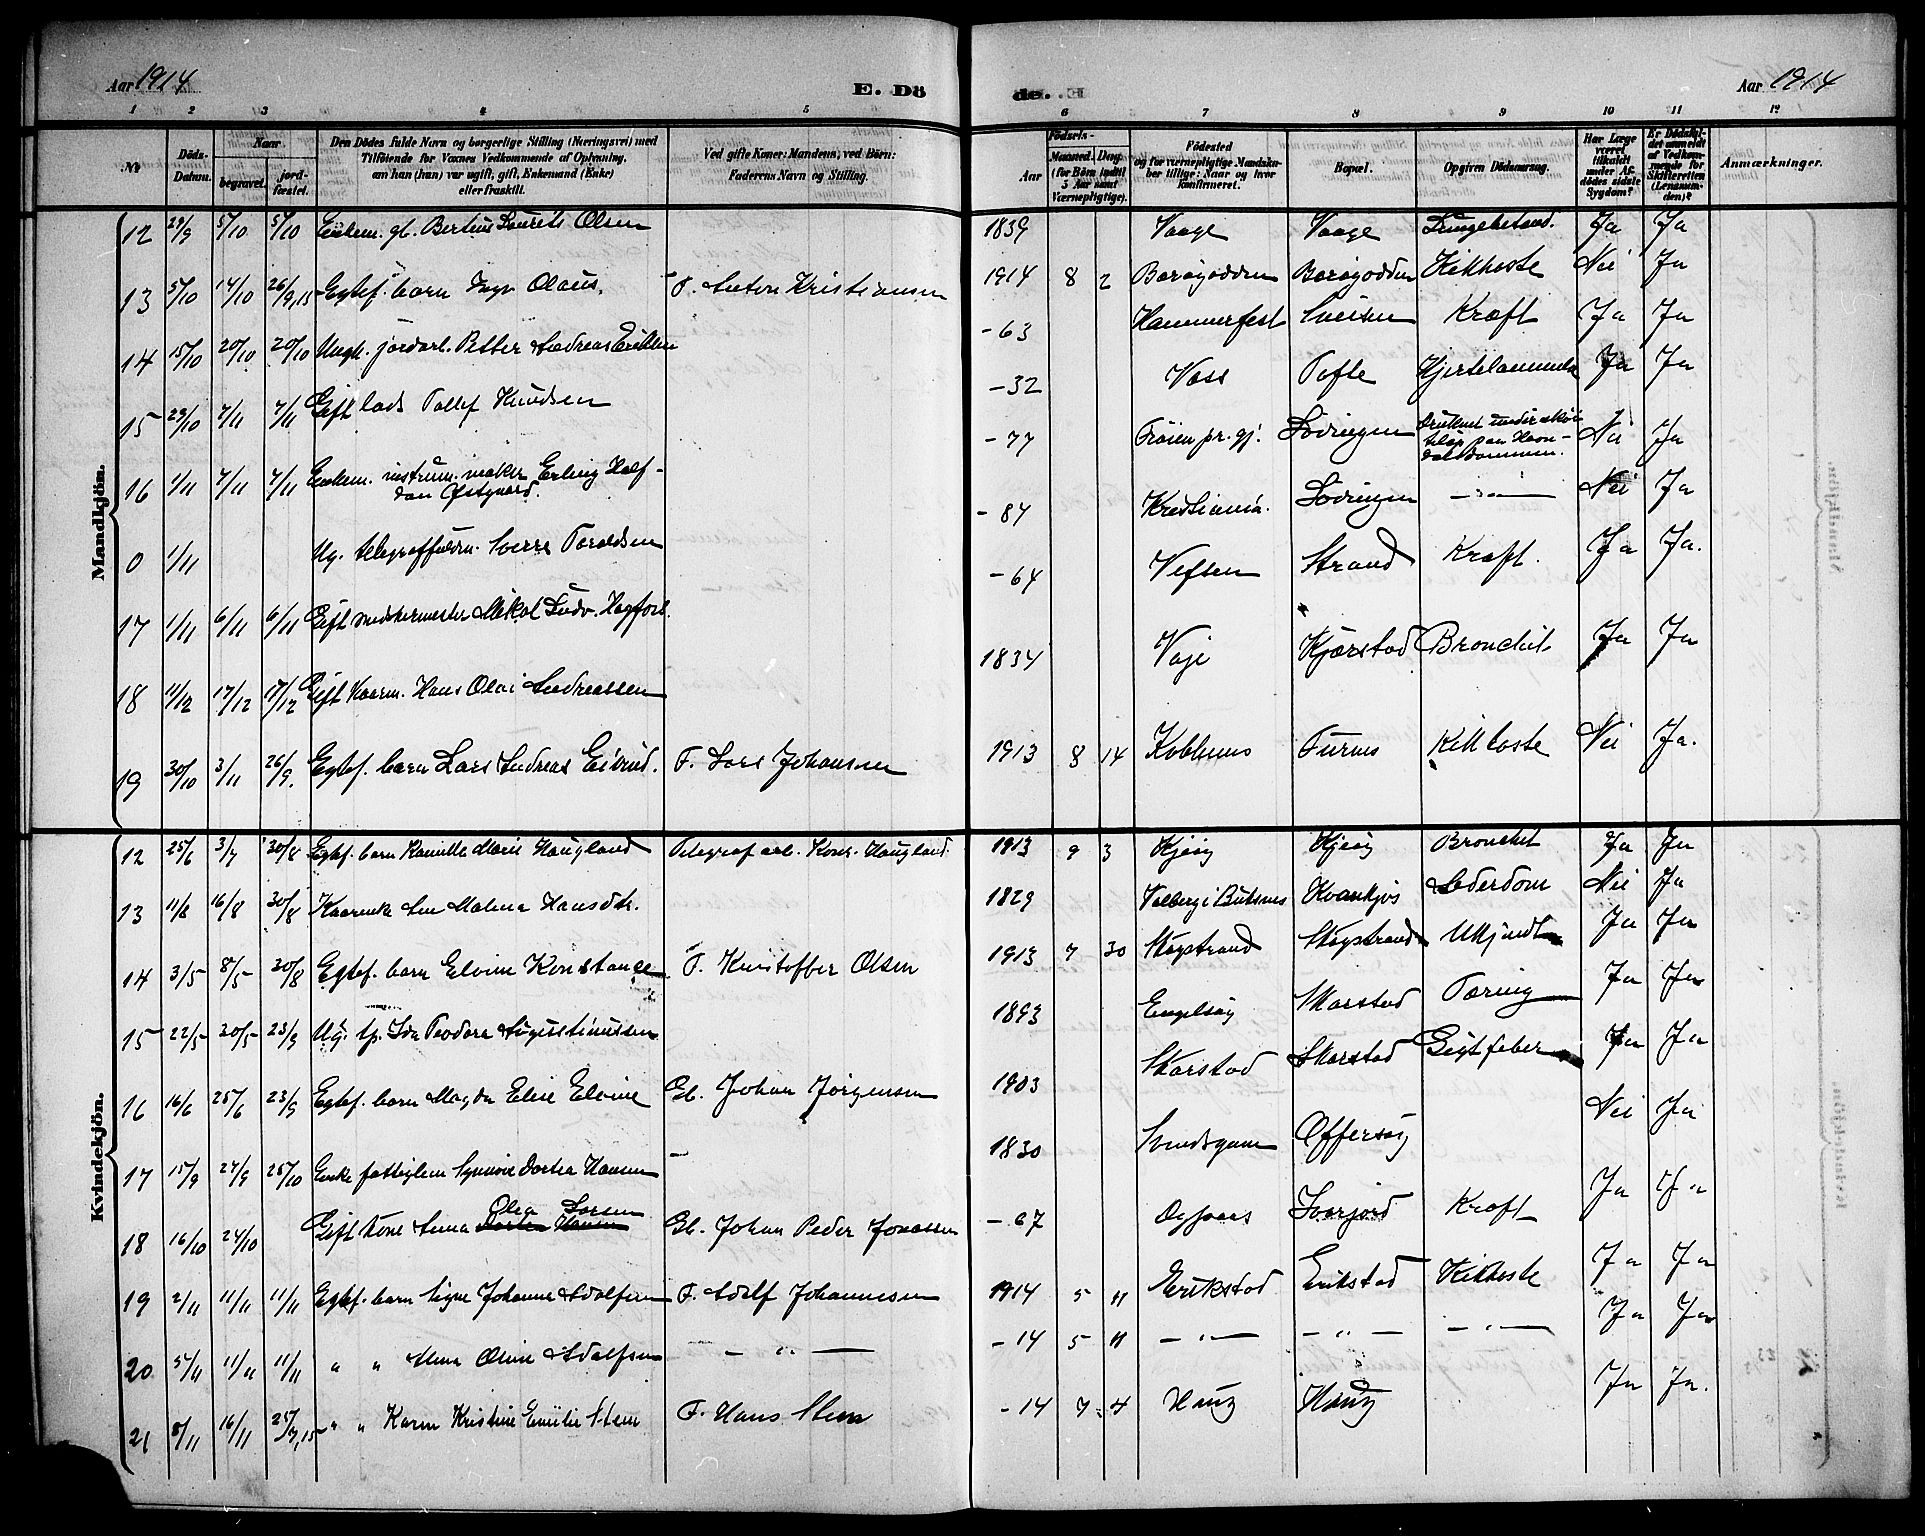 Aar 1914 E. Dö de. Aar 1914
1 2 3 4 5 6 7 8 9 10 11 12
№ Döds-Datum. Naar begravet. jord-fæstet. Den Dödes fulde Navn og borgerlige Stilling (Næringsvei) med Tilföiende for Voxnes Vedkommende af Oplysning, om han (hun) var ugift, gift, Enkemand (Enke) eller fraskilt. Ved gifte Koner: Mandens, ved Börn: Faderens Navn og Stilling. Födsels- Aar Maaned. Dag. (for Börn indtil 5 Aar samt Værnepligtige). Födested og for værnepligtige Mandskaber tillige: Naar og hvor konfirmeret. Bopæl. Opgiven Dödsaarsag. Har Læge været tilkaldt under Afdödes sidste Sygdom? Er Dödsfaldet anmeldt af Vedkommende for Skifteretten (Lensmanden)? Anmærkninger.
Mandkjön.
12 29/9 5/10 5/10 Enkem. gb. Bertius Laurits Olsen 1839 Vaage Vaage Lungebetænd. Ja Ja
13 5/10 14/10 26/9,15 Egtef. barn Inge Olaus. F. Anton Kristiansen 1914 8 2 Barøyodden Barøyodden Kikhoste Nei Ja
14 15/10 20/10 20/10 Ungk. jordarb. Petter Andreas Eriksen -63 Hammerfest Sneisen Kræft Ja Ja
15 29/10 7/11 7/11 Gift lods Tollef Knudsen -32 Voss Tofte Hjertelammelse Ja Ja
16 1/11 7/11 7/11 Enkem. instrum. maker Erling Half-
dan Østgaard. -77 Frøien pr. gj. Lødingen Druknet under skøi-
teløp paa
Nei Ja
0 1/11 Ug. telegraffuldm. Sverre Toraldsen -84 Kristiania. Lødingen —〃— Nei Ja
17 1/11 6/11 6/11 Gift snedkermester Mikal Ludv. Hagfors. -64 Vefsen Strand Kræft. Ja Ja.
18 11/12 17/12 17/12 Gift Kaarm. Hans Olai Andreassen 1834 Vaje Kjærstad Bronchit. Ja Ja
19 30/10 3/11 26/9. Egtef. barn Lars Andreas Eivind. F. Lars Johansen 1913 8 14 Kobbenes Furnes Kikhoste Nei Ja.
Kvindekjön.
12 25/6 3/7 30/8 Egtef. barn Kamilla Marie Haugland Telegrafarb. Konr. Haugland 1913 9 3 Kjeøy Kjeøy Bronchit Ja Ja
13 11/8 16/8 30/8 Kaarenke Ane Malena Hansdtr. 1829 Valberg i Buksnes Kvankjos Alderdom Nei Ja
14 3/5 8/5 30/8 Egtef. barn Elvine Konstance F. Kristoffer Olsen 1913 7 30 Skogstrand Skogstrand Ukjendt Ja Ja
15 22/5 30/5 23/9 Ug. tp. Ida Teodora Augustinussen 1893 Engelsøy Skarstad Tæring Ja Ja
16 16/6 25/6 23/9 Egtef. barn Magda Elise Elvine Gb. Johan Jørgensen 1903 Skarstad Skarstad Gigtfeber Ja Ja
17 15/9 24/9 25/10 Enke fattiglem Synnøve Dortea Hansen — 1830 Offersøy Nei Ja
18 16/10 24/10 Gift kone Anna Olea Larsen Gb. Johan Peder Jonassen -67 Svarjord Kræft Ja Ja
19 2/11 11/11 11/11 Egtef. barn Signe Johanne Adolfsen F. Adolf Johannesen 1914 5 11 Erikstad Erikstad Kikhoste Ja Ja
20 5/11 11/11 11/11 〃 〃 Alma Oline Adolfsen —〃— -14 5 11 —〃— —〃— —〃— Ja Ja
21 8/11 16/11 25/7,15 〃 〃 Karen Kristine Emilie Steen F. Hans Steen -14 7 4 Hauøy Hauøy Ja Ja.